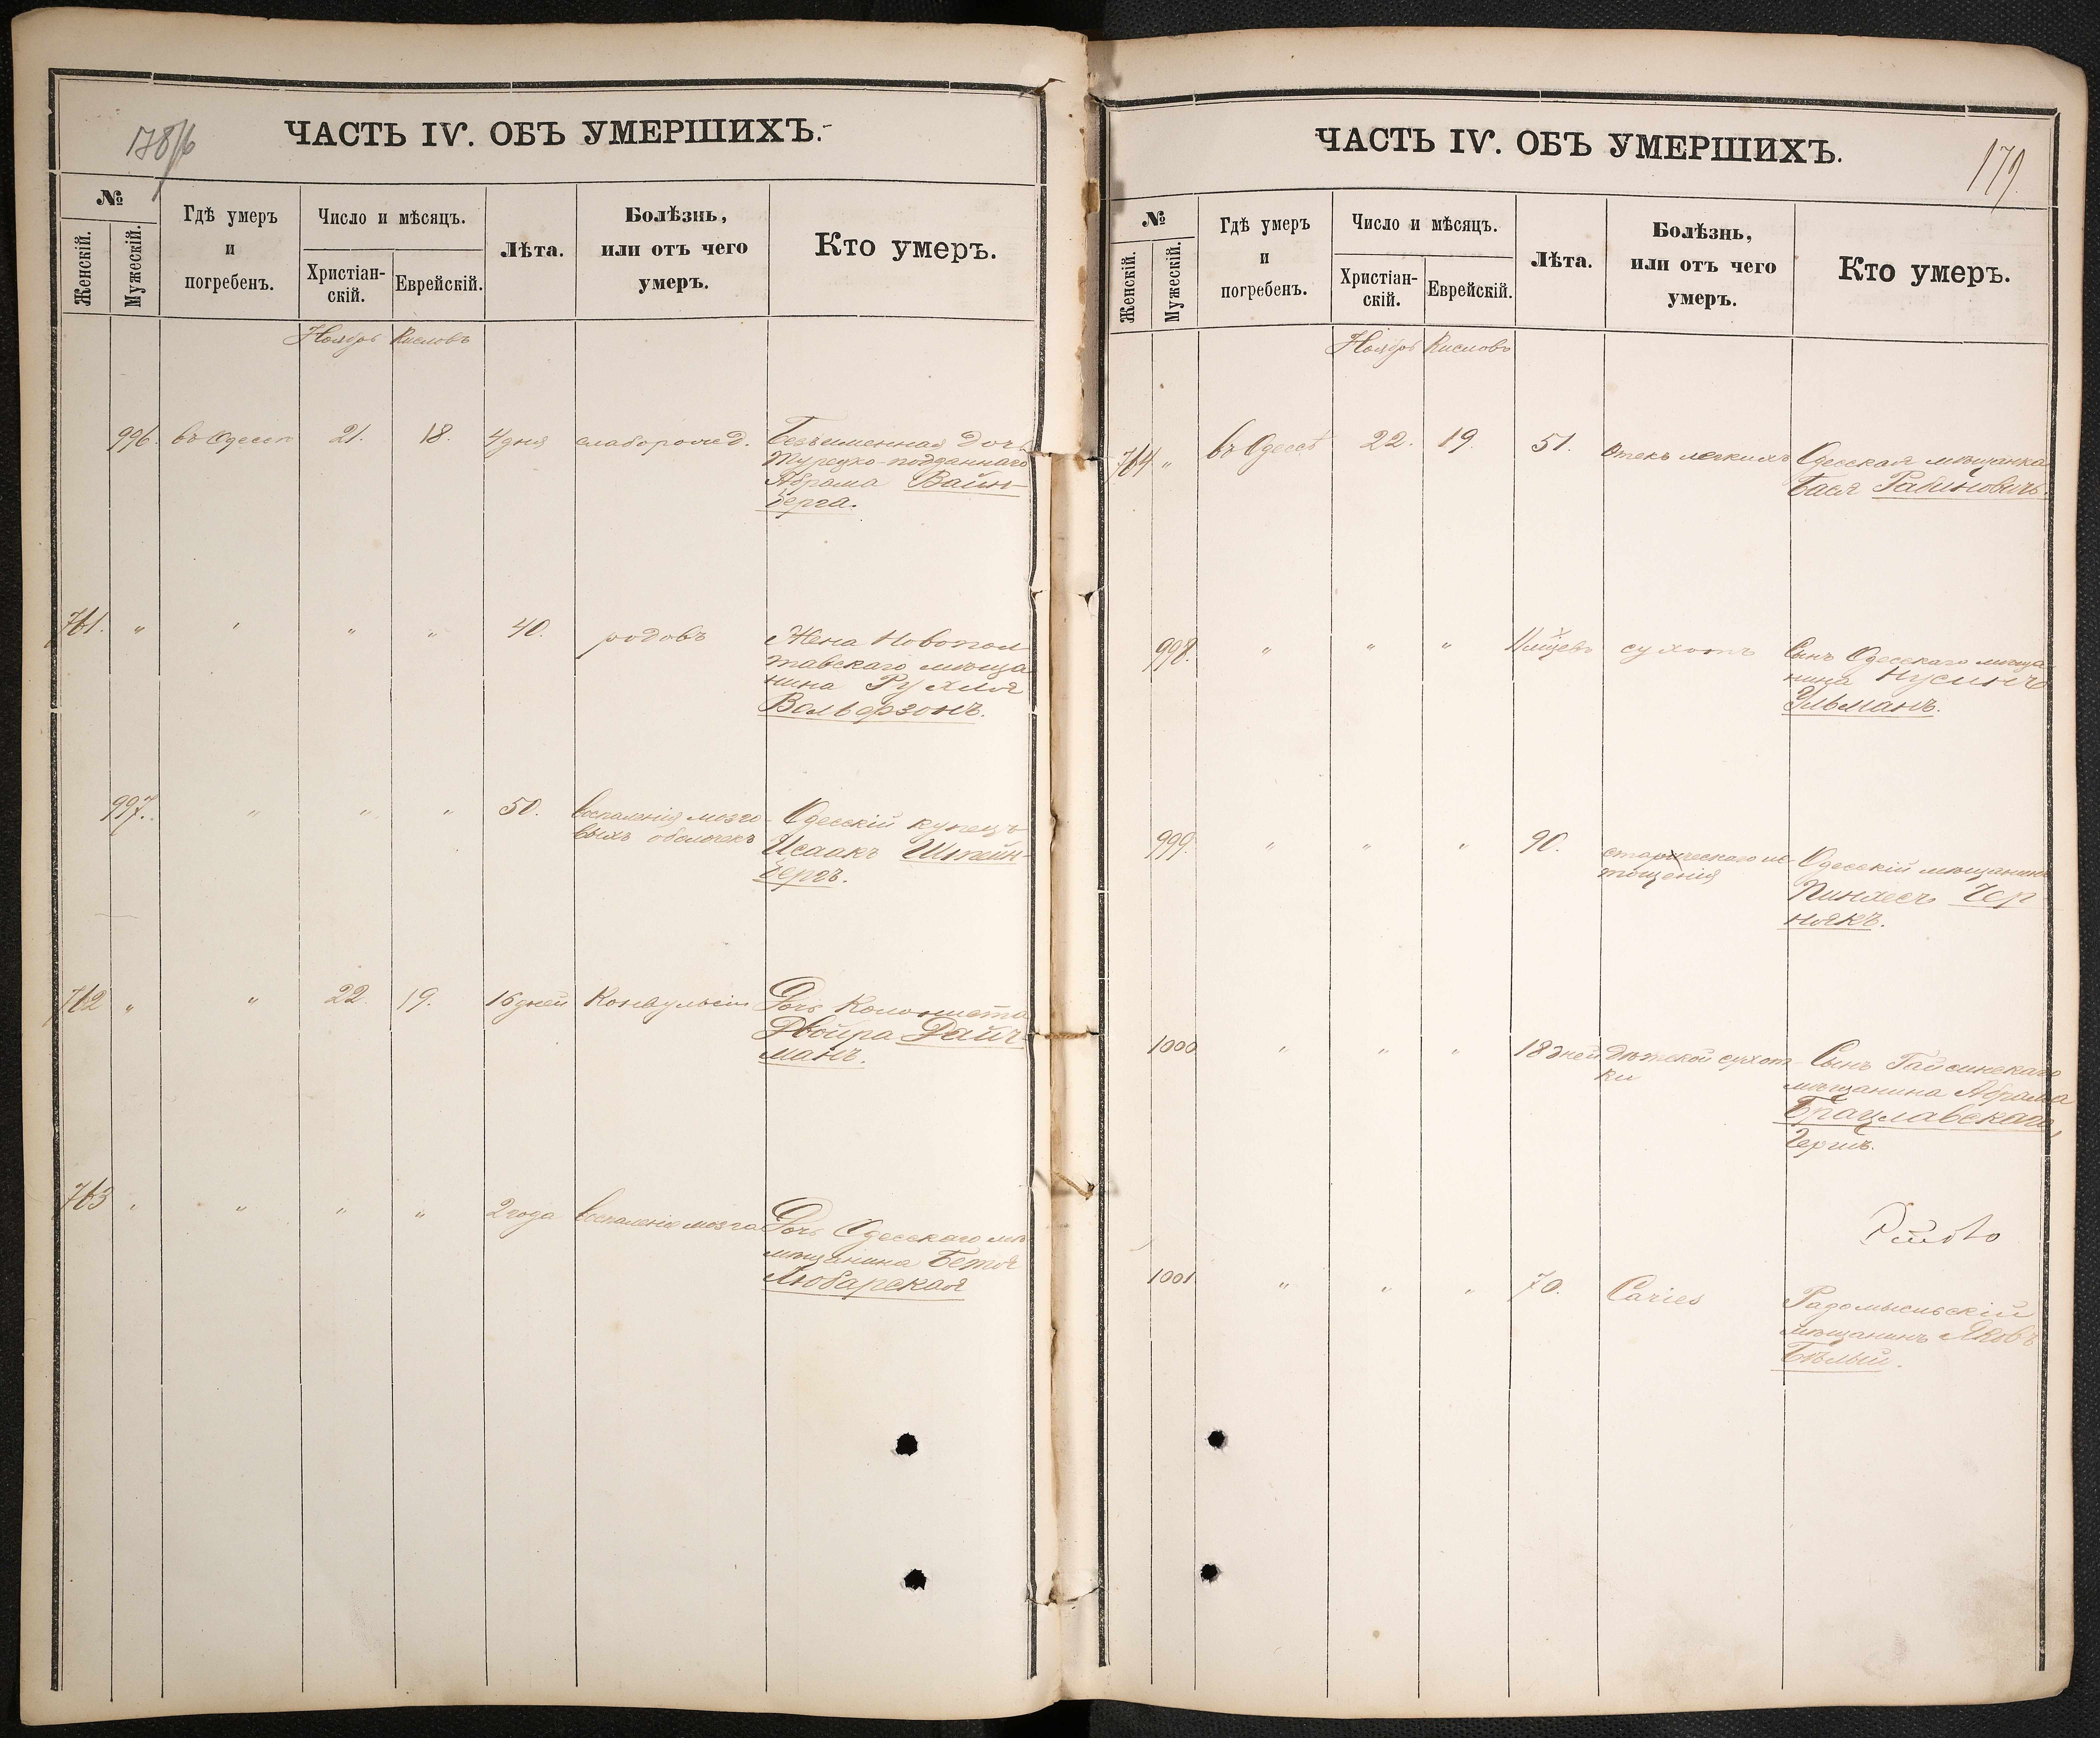 178/б
ЧАСТЬ IV. ОБЪ УМЕРШИХЪ.
№
Женскій.
Мужескій.
Гдѣ умеръ
и
погребенъ.
Число и мѣсяцъ.
Христіан-
скій.
Еврейскій.
Лѣта.
Болѣзнь,
или отъ чего
умеръ.
Кто умеръ.
Ноябрь Кислевъ
996. въ Одессѣ 21. 18. 4 дня слаборожд. Безъименная дочь
Турецко-подданнаго
Абрама Вайн-
берга.
761. " " " " 40. родовъ Жена Новопол
тавскаго мѣща
нина Рухля
Вольфзонъ.
997. " " " 50. воспаленія мозго Одесскій купецъ
выхъ оболочекъ Исаакъ Штейн-
бергъ.
762 " " 22. 19. 16 дней Конвульсіи Дочь Колониста
Двойра Дайч-
манъ.
763 " " " " 2 года воспаленіе мозга Дочь Одесскаго мѣ
мѣщанина Бетя
Любарская
179.
ЧАСТЬ IV. ОБЪ УМЕРШИХЪ.
№
Женскій.
Мужескій.
Гдѣ умеръ
и
погребенъ.
Число и мѣсяцъ.
Христіан-
скій.
Еврейскій.
Лѣта.
Болѣзнь,
или отъ чего
умеръ.
Кто умеръ.
Ноябрь Кислевъ
764 " въ Одессѣ 22. 19. 51. Отекъ легкихъ Одесская мѣщанка
Бася Рабиновичъ.
998. " " " сухотъ Сынъ Одесскаго мѣща
нина Нусинъ
Ульманъ.
999. " " " 90. старческаго ис- Одесскій мѣщанинъ
тощенія Пинхесъ Чер
някъ.
1000 " " " 18 дней дѣтской сухот- Сынъ Гайсинскаго
ки мѣщанина Абрама
Брацлавскаго,
Гершъ.
1001. " " " 70. Caries Радомысльскій
мѣщанинъ Яковъ
Бѣлый.